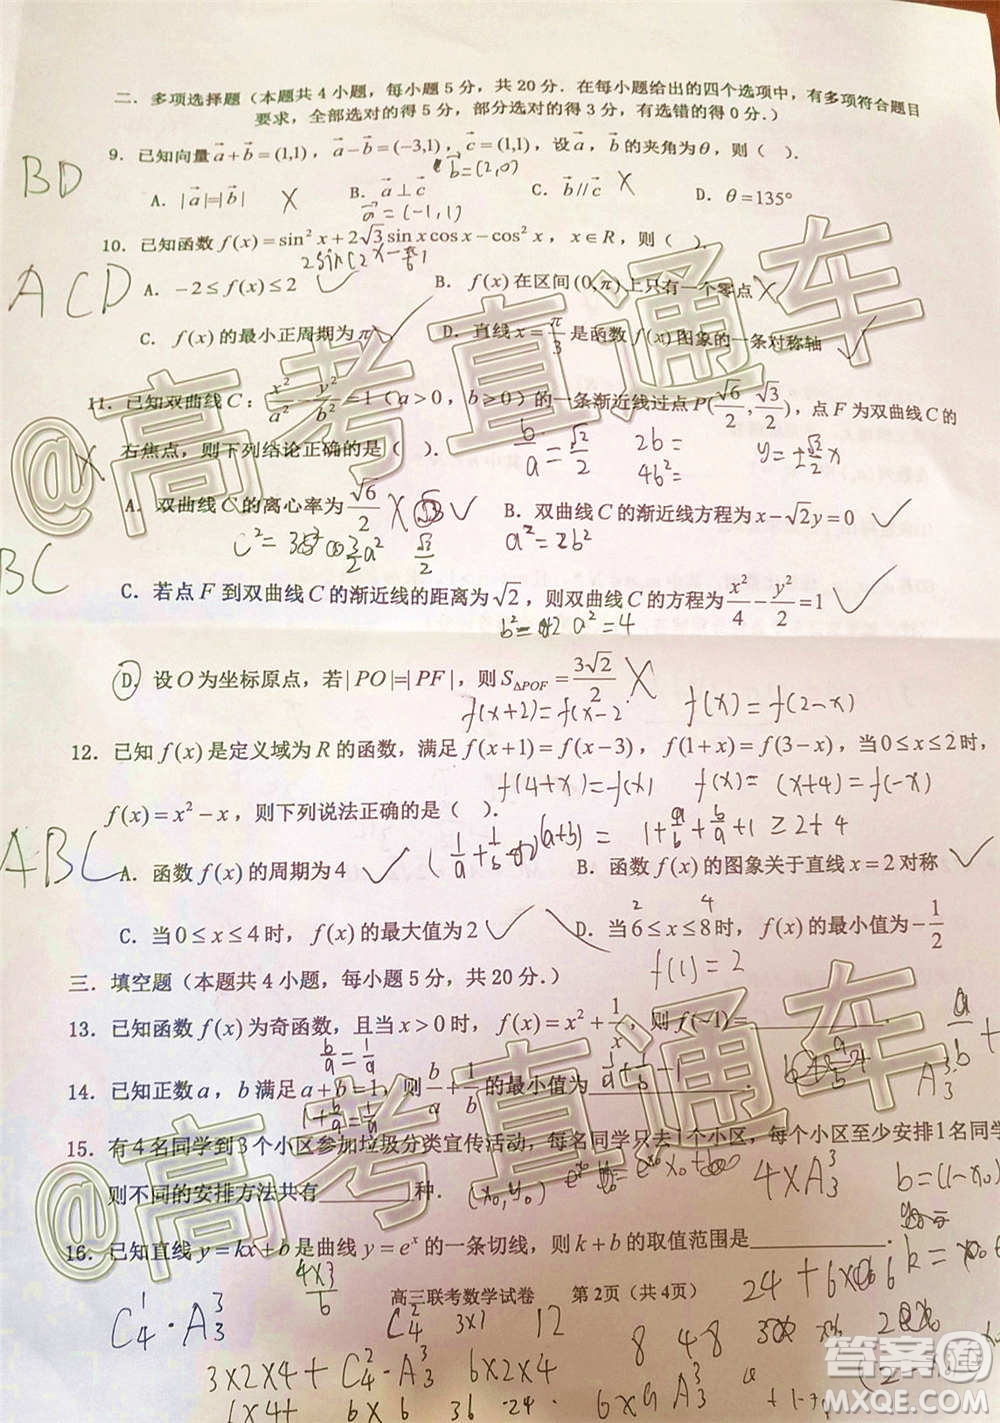 二．多项选择题（本题共4小题，每小题5分，共20分．在每小题给出的四个选项中，有多项符合题目
要求，全部选对的得5分，部分选对的得3分，有选错的得0分．）
9．已知向量a+b=(1,1)，a−b=(−3,1)，c=(1,1)，设a，b的夹角为θ，则（　）．
BD
b=(2,0)
A．|a|=|b| X B．a⊥c C．b//c X D．θ=135°
a=(-1,1)
10．已知函数f(x)=sin²x+2√3sinxcosx−cos²x，x∈R，则（　）．
2sin(2x-π/6)
ACD
A．−2≤f(x)≤2 ✓ B．f(x)在区间(0,π)上只有一个零点 X
C．f(x)的最小正周期为π ✓ D．直线x=π/3是函数f(x)图象的一条对称轴 ✓
11．已知双曲线C：x²/a²−y²/b²=1（a>0，b>0）的一条渐近线过点P(√6/2,√3/2)，点F为双曲线C的
右焦点，则下列结论正确的是（　）．
b/a=√2/2 2b= 4b²= y=±√2/2 x
A．双曲线C的离心率为√6/2 X ✓ B．双曲线C的渐近线方程为x−√2y=0 ✓
√2/2 a²=2b²
BC
C．若点F到双曲线C的渐近线的距离为√2，则双曲线C的方程为x²/4−y²/2=1 ✓
a²=4
D．设O为坐标原点，若|PO|=|PF|，则S△POF=3√2/2 X
f(x+2)=f(x-2 f(x)=f(2-x)
12．已知f(x)是定义域为R的函数，满足f(x+1)=f(x−3)，f(1+x)=f(3−x)，当0≤x≤2时，
f(4+x)=f(x) f(x)= (x+4)=f(-x)
f(x)=x²−x，则下列说法正确的是（　）．
(a+b)= 1+a/b+b/a+1≥2+4
ABC
A．函数f(x)的周期为4 ✓ B．函数f(x)的图象关于直线x=2对称 ✓
2 4
C．当0≤x≤4时，f(x)的最大值为2 ✓ D．当6≤x≤8时，f(x)的最小值为−1/2
f(1)=2
三．填空题（本题共4小题，每小题5分，共20分．）
13．已知函数f(x)为奇函数，且当x>0时，f(x)=x²+1/x，则f(−1)=________．
b/a=1/a
14．已知正数a，b满足a+b=1，则b/a+1/b的最小值为________．
1+b/a=1/a
15．有4名同学到3个小区参加垃圾分类宣传活动，每名同学只去1个小区，每个小区至少安排1名同学
则不同的安排方法共有________种．
(x₀,y₀) 4×A³₃ b=(1-x₀)
16．已知直线y=kx+b是曲线y=eˣ的一条切线，则k+b的取值范围是________．
4×3/6
高三联考数学试卷　第2页（共4页）
C¹₄·A³₃ C²₄ 3×1 12 8 4-8
3×2×4+C²₄·A³₃ 6×2×4
@高考直通车
@高考直通车
答案圈
MXQE.COM